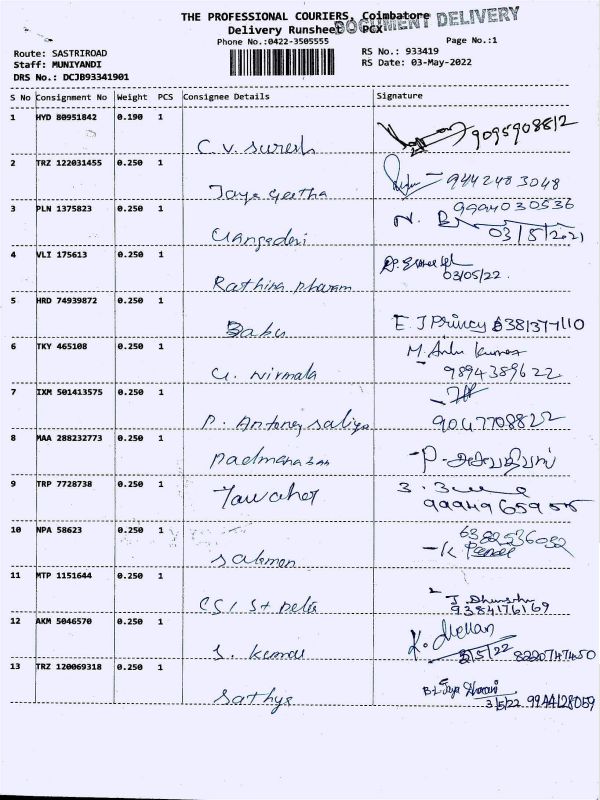 THE PROFESSIONAL COURIERS, Coimbatore
DOCUMENT DELIVERY
Delivery Runsheet PCX
Phone No.:0422-3505555
Page No.:1
Route: SASTRIROAD
RS No.: 933419
Staff: MUNIYANDI
RS Date: 03-May-2022
DRS No.: DCJB93341901
S No Consignment No Weight PCS Consignee Details Signature
1 HYD 80951842 0.190 1
C. V. Suresh 9095908812
2 TRZ 122031455 0.250 1
Jaya geetha 9442483048
3 PLN 1375823 0.250 1
9994030536
N.
03/5/2021
4 VLI 175613 0.250 1
03/05/22.
Rathina
5 HRD 74939872 0.250 1
Babu E. J Princy 6381371110
6 TKY 465108 0.250 1
M.
G. Nirmala 9894389622
7 IXM 501413575 0.250 1
P. Antoney 9047708822
8 MAA 288232773 0.250 1
Padmanaban
9 TRP 7728738 0.250 1
Jawahar
9994965955
10 NPA 58623 0.250 1
6382536032
Salomon -K
11 MTP 1151644 0.250 1
CSI St J.
9384176169
12 AKM 5046570 0.250 1
K.
S. Kumar 3/5/22 8220747450
13 TRZ 120069318 0.250 1
Sathya 3/5/22 9944128059